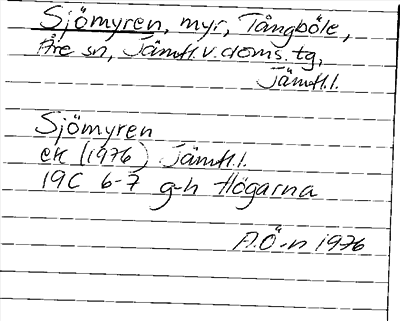 Sjömyren, myr, Tångböle,
Åre sn, Jämtl. v. doms. tg,
Jämtl.l.
Sjömyren
ek (1976) Jämtl.l.
19C 6-7 g-h Högarna
A.Ö-n 1976